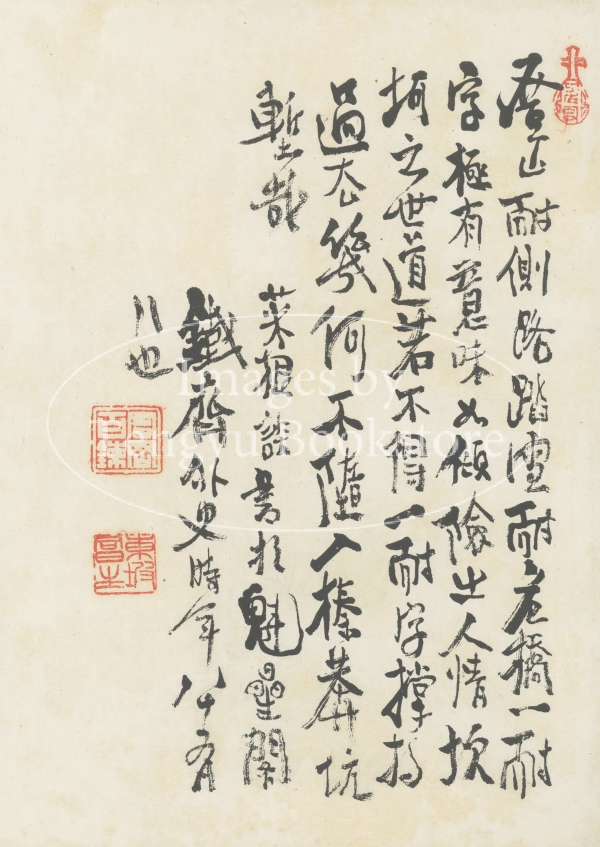 登山耐側路踏雪耐危橋一耐
字極有意味如傾險之人情坎
坷之世道若不得一耐字撐持
過去幾何不墮入榛莽坑
塹哉
菜根譚書於魁星閣
鐵齋外史時年八十有
八也
富岡百鍊
東坡
Images by
Tengyu Bookstore